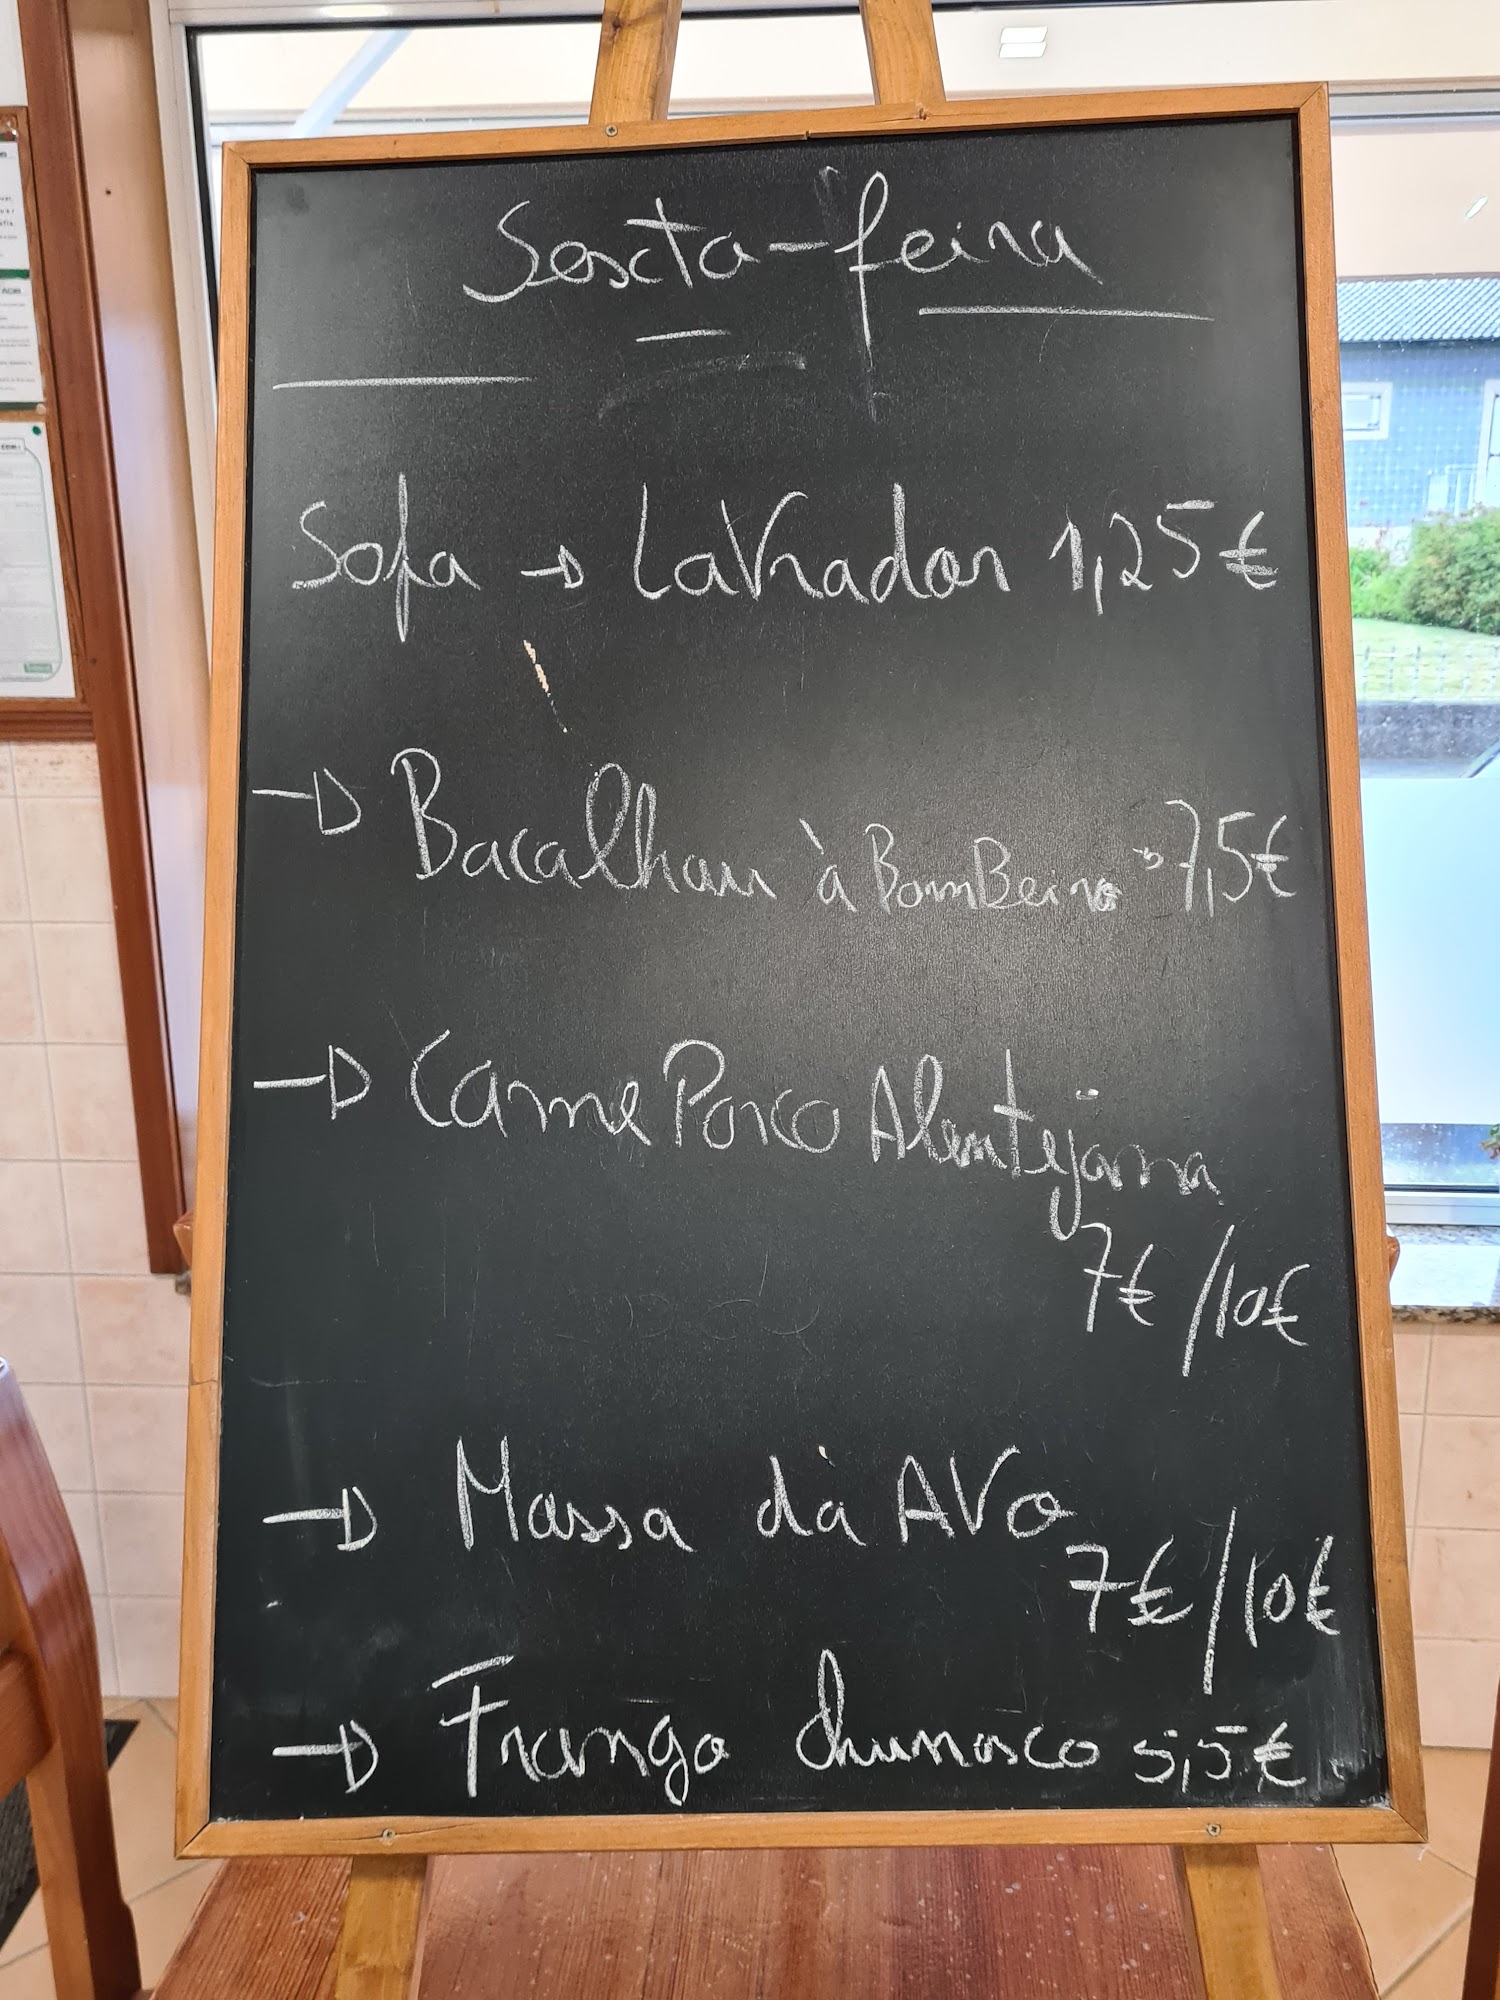 Sexta-feira
Sopa → Lavrador 1,25€
→ Bacalhau à Bombeiro → 7,5€
→ Carne Porco Alentejana
7€ / 10€
→ Massa dà Avo
7€ / 10€
→ Frango churrasco 5,5€